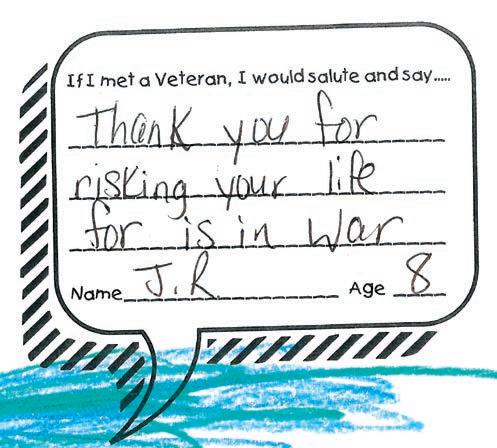 If I met a Veteran, I would salute and say.....
Thank you for
risking your life
for is in War
Name J.R Age 8